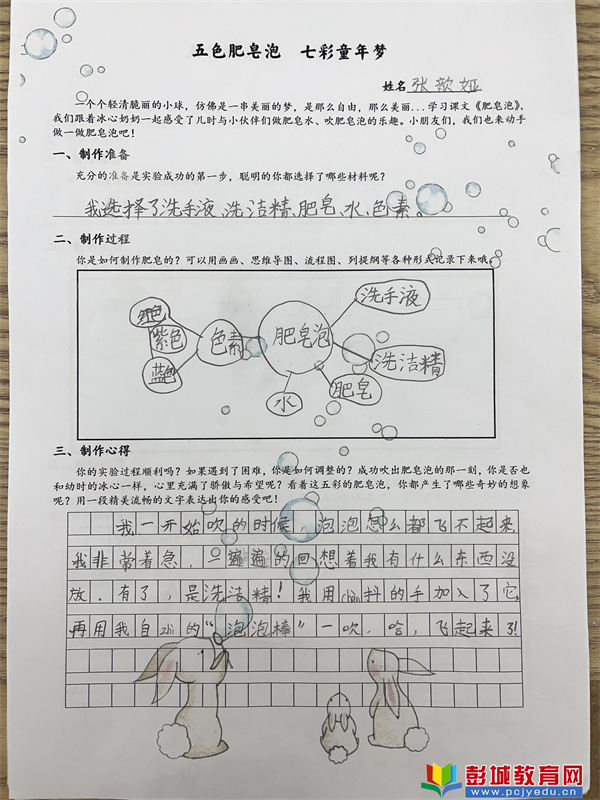 五色肥皂泡 七彩童年梦
姓名 张歆娅
一个个轻清脆丽的小球，仿佛是一串美丽的梦，是那么自由，那么美丽...学习课文《肥皂泡》，
我们跟着冰心奶奶一起感受了儿时与小伙伴们做肥皂水、吹肥皂泡的乐趣。小朋友们，我们也来动手
做一做肥皂泡吧！
一、制作准备
充分的准备是实验成功的第一步，聪明的你都选择了哪些材料呢？
我选择了洗手液、洗洁精、肥皂、水、色素。
二、制作过程
你是如何制作肥皂的？可以用画画、思维导图、流程图、列提纲等各种形式记录下来哦。
红色
紫色
蓝色
色素
肥皂泡
洗手液
洗洁精
肥皂
水
三、制作心得
你的实验过程顺利吗？如果遇到了困难，你是如何调整的？成功吹出肥皂泡的那一刻，你是否也
和幼时的冰心一样，心里充满了骄傲与希望呢？看着这五彩的肥皂泡，你都产生了哪些奇妙的想象
呢？用一段精美流畅的文字表达出你的感受吧！
我一开始吹的时候，泡泡怎么都飞不起来，
我非常着急，一遍遍的回想着我有什么东西没
放．有了，是洗洁精！我用chàn抖的手加入了它，
再用我自zhì的“泡泡棒”一吹，哈，飞起来了！
彭城教育网
www.pcjyedu.cn